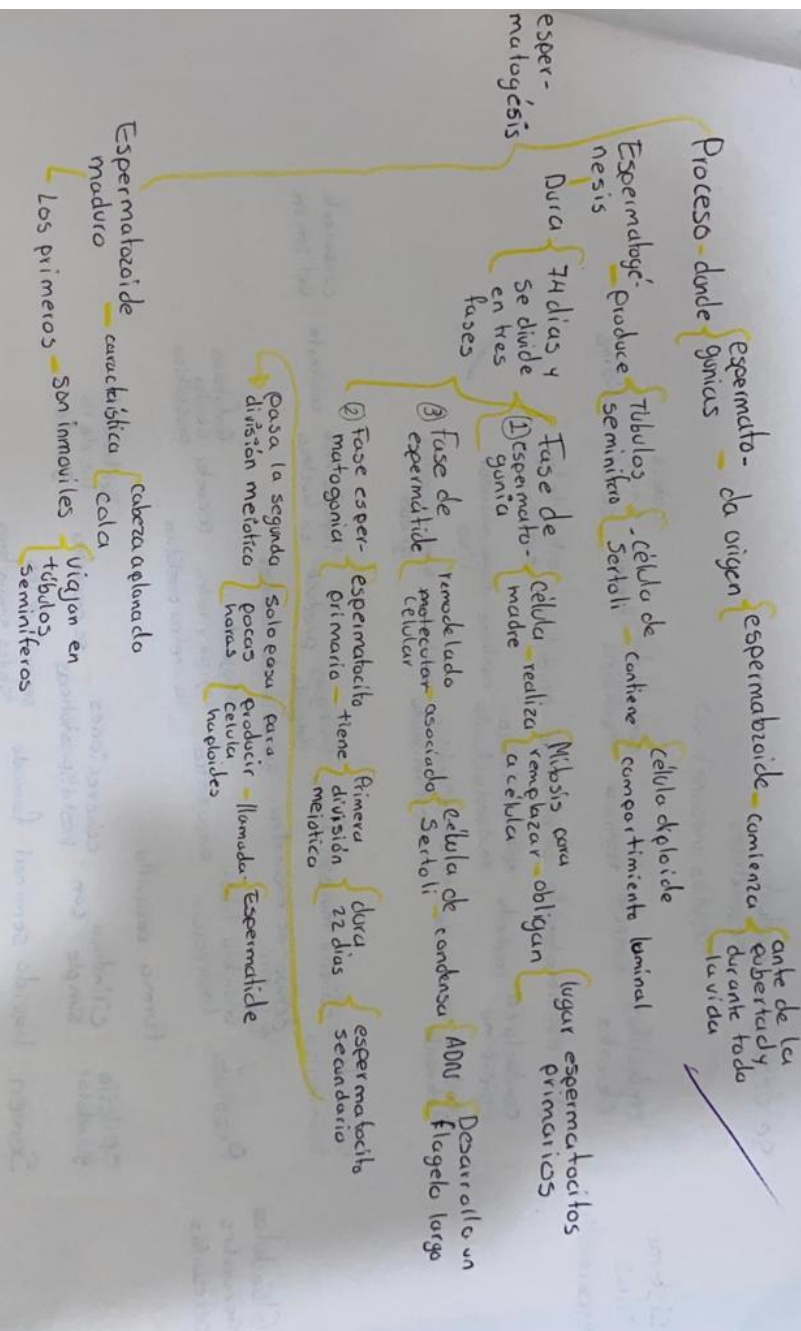 esper-
matogésis
Proceso - donde
espermato-
gonias
da origen
espermatozoide - comienza
ante de la
pubertad y
durante toda
la vida
Espermatogé-
nesis
produce
Túbulos
seminífero
célula de
Sertoli
contiene
célula diploide
compartimiento luminal
Dura
74 días y
se divide
en tres
fases
Fase de
① espermato-
gonia
célula
madre
realiza
Mitosis para
remplazar
a célula
obligan
lugar espermatocitos
primarios
③ Fase de
espermátide
remodelado
molecular
celular
asociado
célula de
Sertoli
condensa
ADN
Desarrolla un
flagelo largo
② Fase esper-
matogonica
espermatocito
primario
tiene
Primera
división
meiotica
dura
22 días
espermatocito
secundario
pasa la segunda
división meiotica
solo pasa
pocas
horas
para
producir
celula
haploides
llamada
Espermatide
Espermatozoide
maduro
característica
cabeza aplanado
cola
Los primeros
son inmoviles
viajan en
túbulos
seminíferos